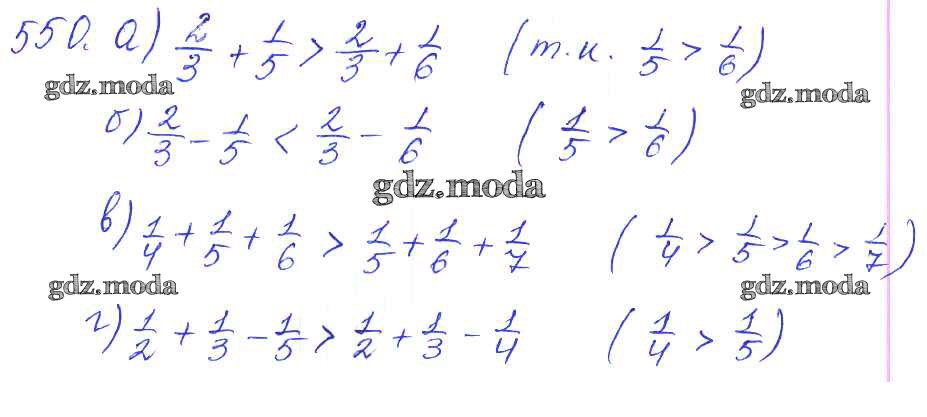 550. а) 2/3 + 1/5 > 2/3 + 1/6 (т.к. 1/5 > 1/6)
gdz.moda gdz.moda
б) 2/3 - 1/5 < 2/3 - 1/6 (1/5 > 1/6)
gdz.moda
в) 1/4 + 1/5 + 1/6 > 1/5 + 1/6 + 1/7 (1/4 > 1/5 > 1/6 > 1/7)
gdz.moda gdz.moda
г) 1/2 + 1/3 - 1/5 > 1/2 + 1/3 - 1/4 (1/4 > 1/5)